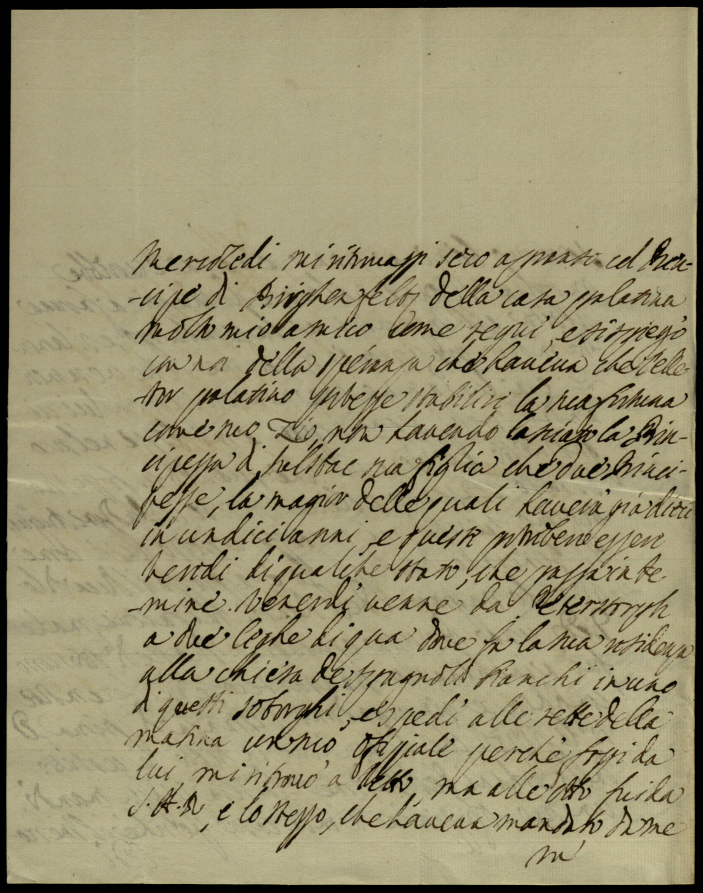 Mercoledi mi ritrovassi seco a pranso col Prin-
-cipe di Birghenfeltz della casa palatina
molto mio amico come segui, e si spiegò
con noi della speranza che haveva che l'elle-
-tor palatino potesse stabilire la sua fortuna
come suo Zio, non havendo lasciato la Prin-
cipessa di Sulsbac sua figlia che due Princi-
pesse, la magior delle quali haverà già dieci
in undici anni, e queste potrebbero essere
heredi di qualche stato, che passa in fe-
-mine. Venerdi venne da
a due leghe di qua dove fa la sua residenza
alla chiesa de spagnoli bianchi in uno
di questi soborghi, e spedi alle sette della
matina un suo offiziale perche fossi da
lui, mi ritrovò a letto, ma alle otto fui da
S.A.R., e lo stesso, che haveva mandato da me
m'